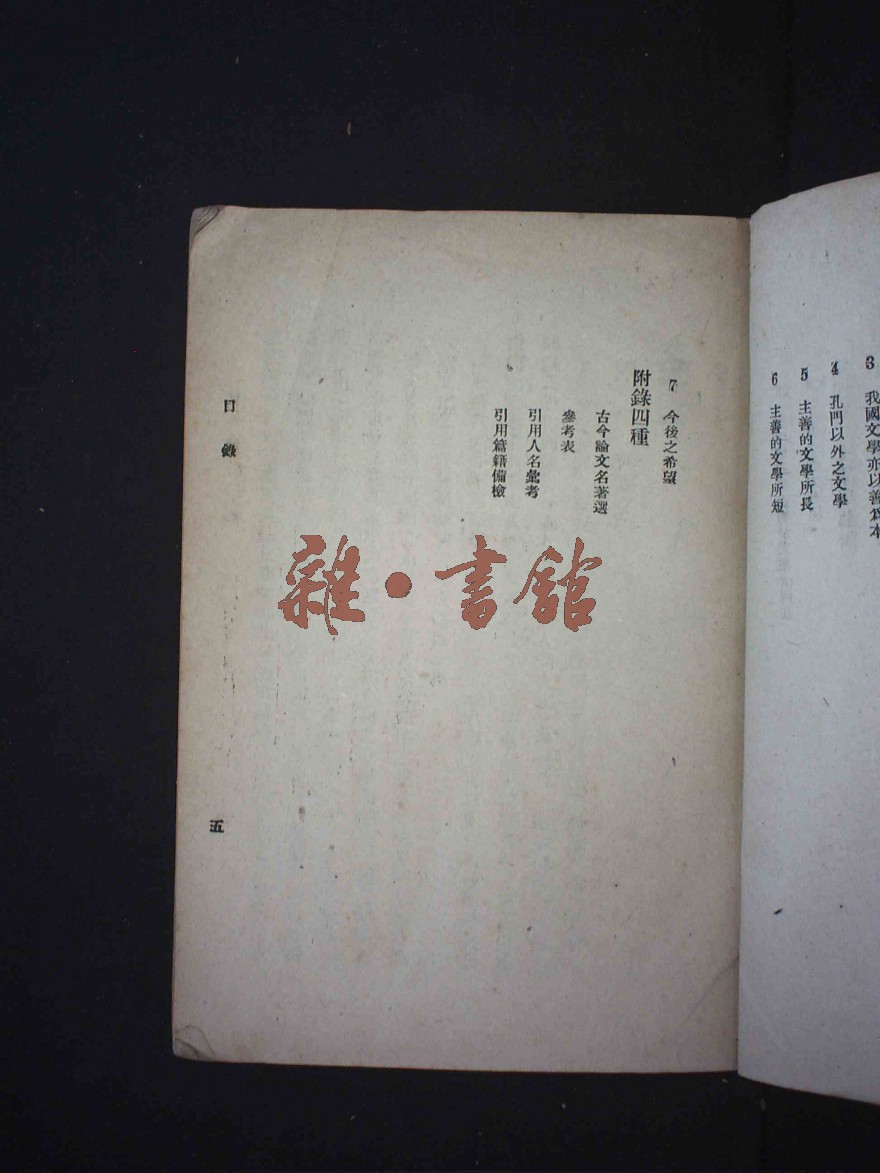 3 我國文學亦以善爲本
4 孔門以外之文學
5 主善的文學所長
6 主善的文學所短
7 今後之希望
附錄四種
古今論文名著選
參考表
引用人名彙考
引用篇籍備檢
目錄
五
雜·書館